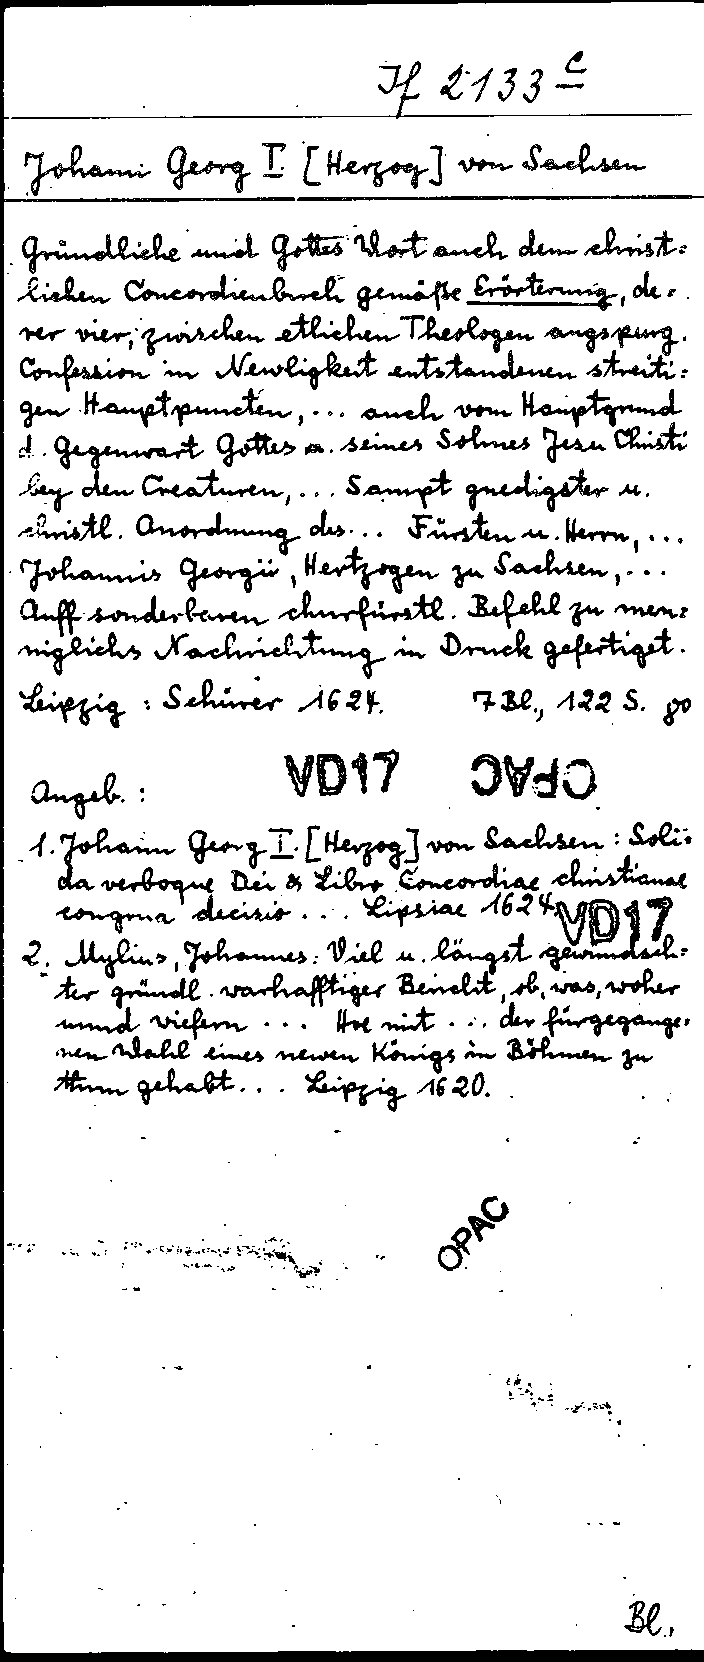 If 2133 c
Johann Georg I. [Herzog] von Sachsen
Gründliche und Gottes Wort auch dem christ=
lichen Concordienbuch gemäße Erörterung, de=
rer vier, zwischen etlichen Theologen augspurg.
Confession in Newligkeit entstandenen streiti=
gen Hauptpuncten, ... auch vom Hauptgrund
d. Gegenwart Gottes u. seines Sohnes Jesu Christi
bey den Creaturen, ... Sampt gnedigster u.
christl. Anordnung des ... Fürsten u. Herrn, ...
Johannis Georgii, Hertzogen zu Sachsen, ...
Auff sonderbaren churfürstl. Befehl zu men=
niglichs Nachrichtung in Druck gefertiget.
Leipzig : Schürer 1624. 7 Bl., 122 S. 8o
VD17 OPAC
Angeb. :
1. Johann Georg I. [Herzog] von Sachsen : Soli=
da verboque Dei & Libro Concordiae christianae
congrua decisio ... Lipsiae 1624
VD17
2. Mylius, Johannes: Viel u. längst gewündsch=
ter gründl. warhafftiger Bericht, ob, was, woher
unnd wiefern ... Hoe mit ... der fürgegange=
nen Wahl eines newen Königs in Böhmen zu
thun gehabt ... Leipzig 1620.
OPAC
Bl.